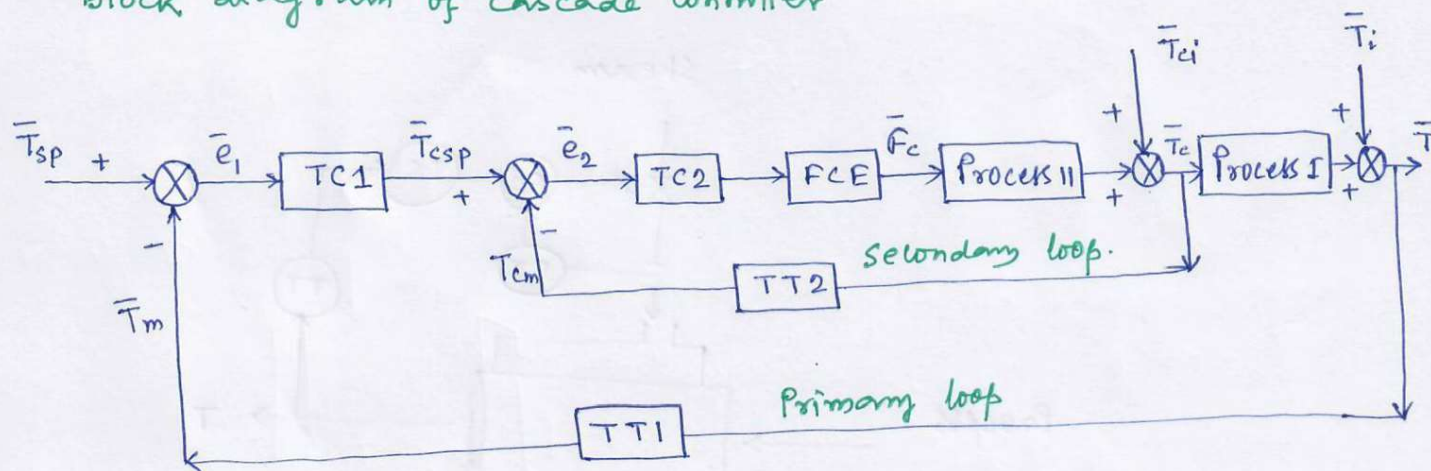 Block diagram of cascade controller
T̄ci
T̄i
T̄sp + ē1 TC1 T̄csp + ē2 TC2 FCE F̄c Process II + + T̄c Process I + + T̄
− T̄m
− Tcm TT2 secondary loop.
TT1 Primary loop